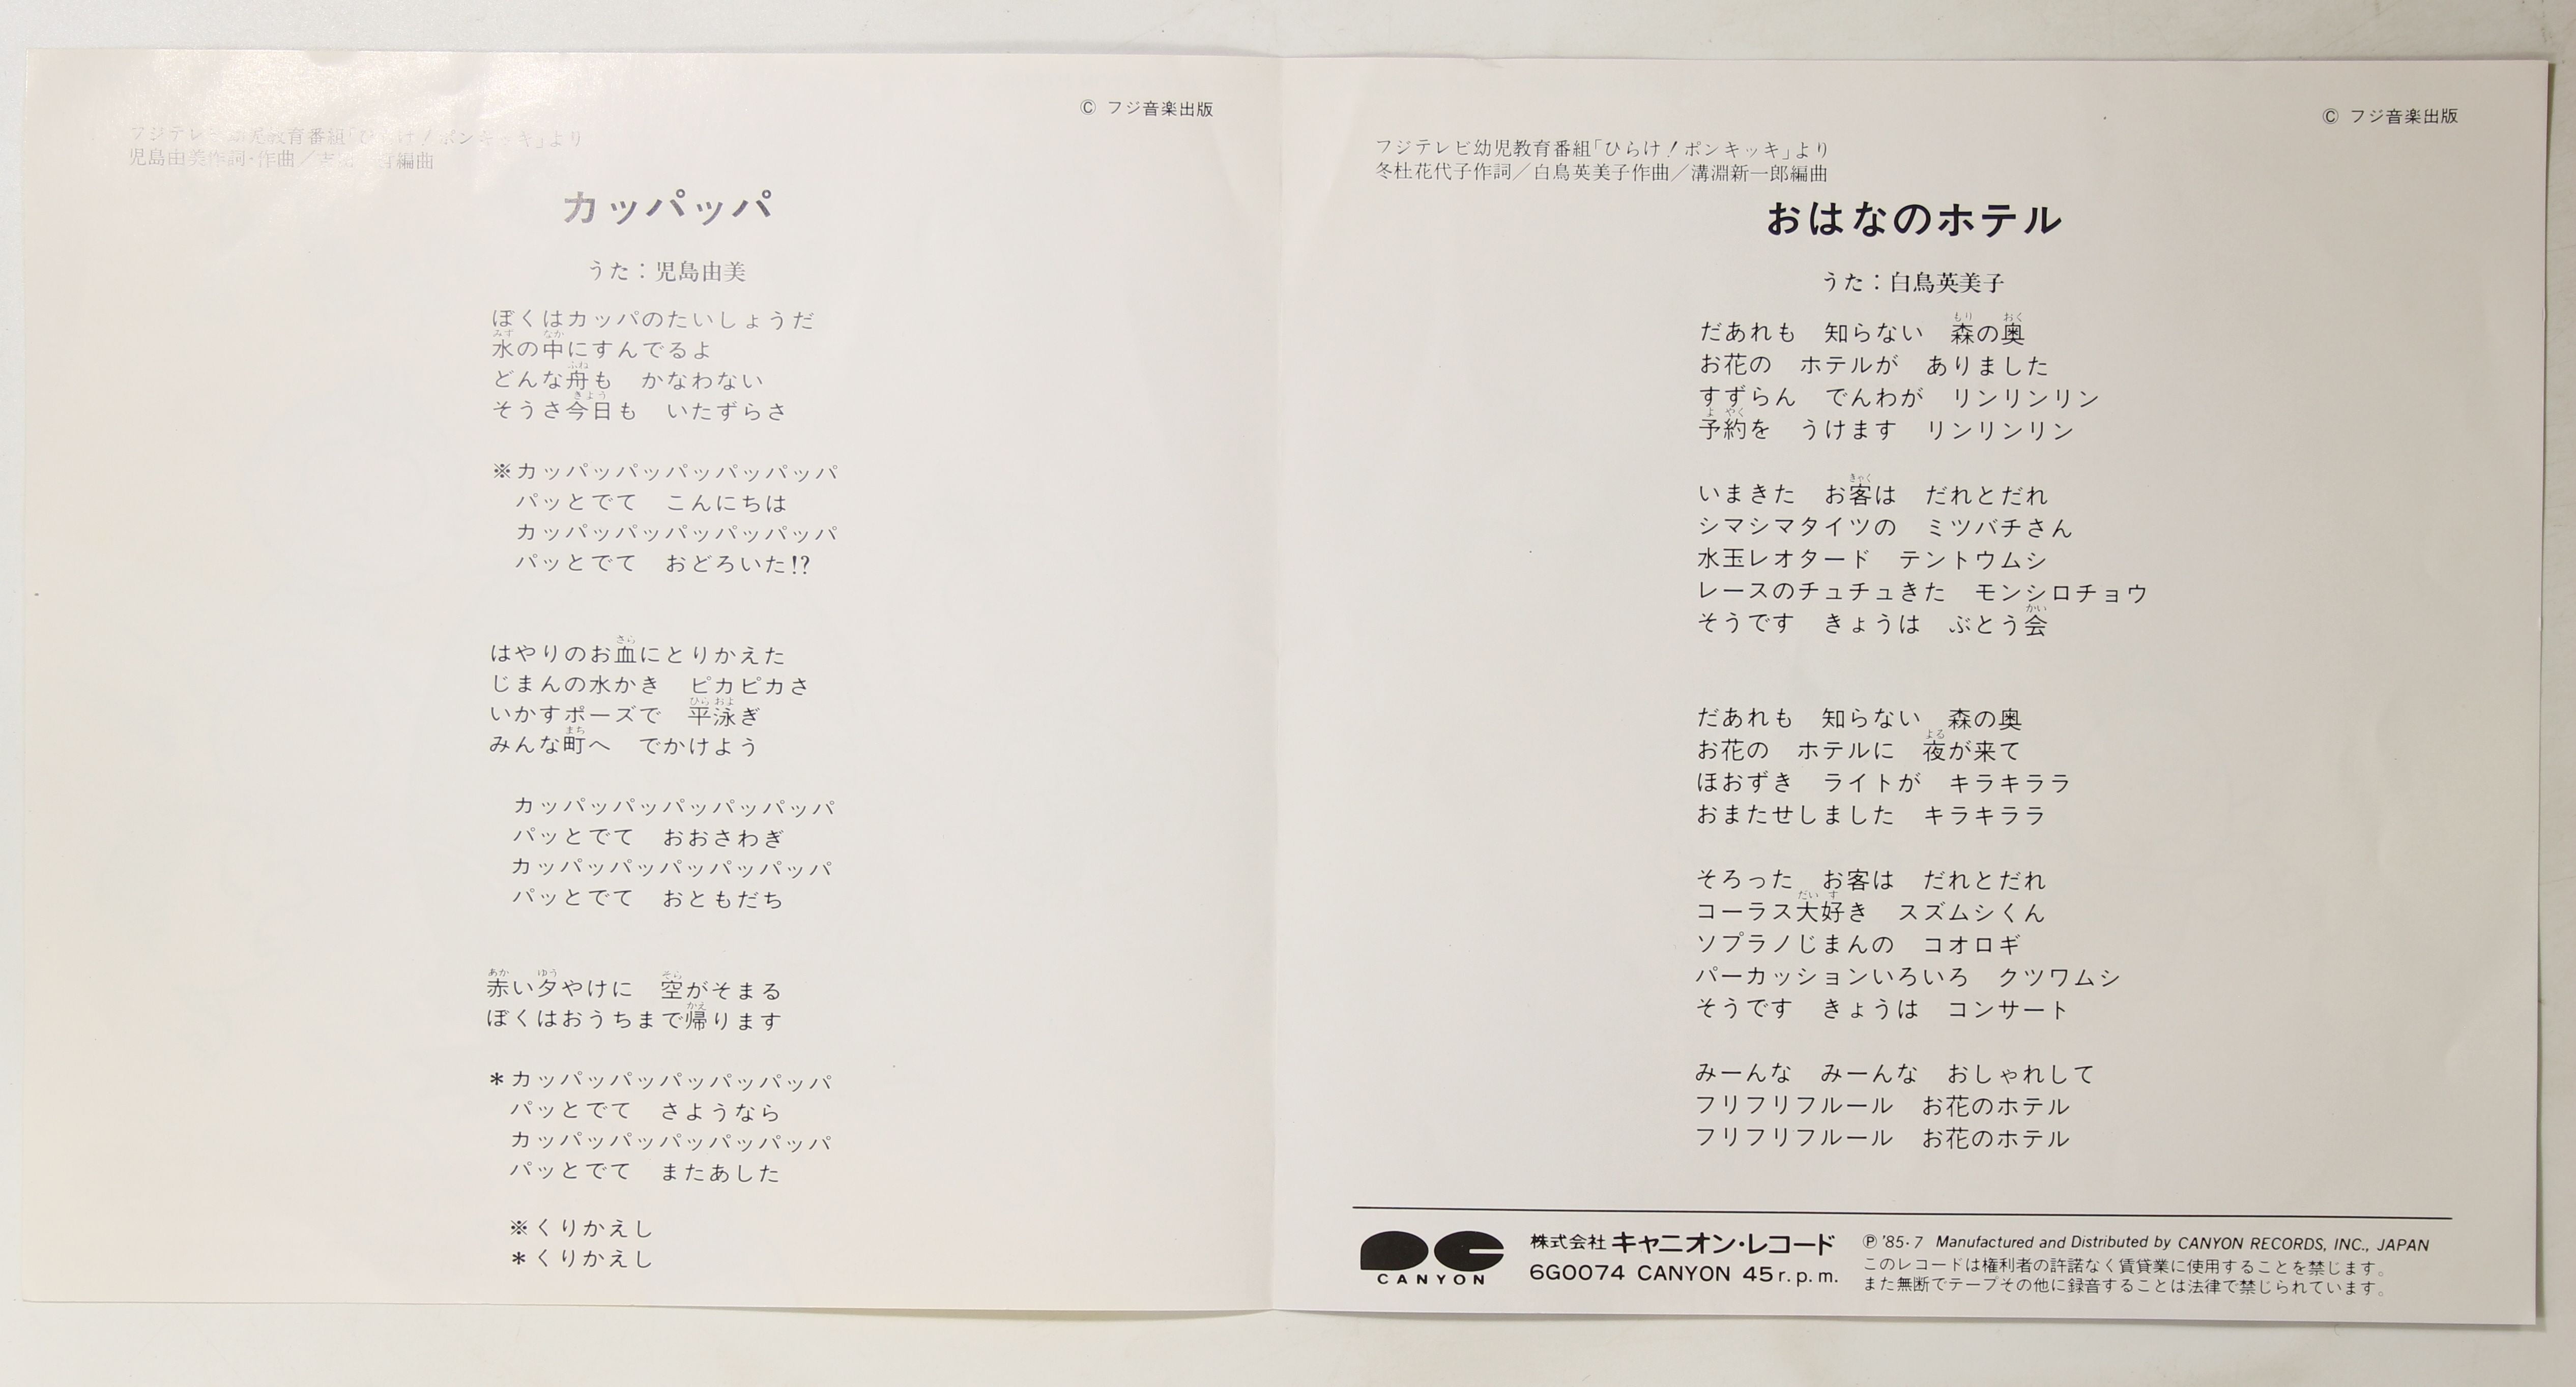 © フジ音楽出版
フジテレビ幼児教育番組「ひらけ！ポンキッキ」より
児島由美作詞・作曲／編曲
カッパッパ
うた：児島由美
ぼくはカッパのたいしょうだ
みず なか
水の中にすんでるよ
ふね
どんな舟も　かなわない
きょう
そうさ今日も　いたずらさ
※カッパッパッパッパッパッパ
パッとでて　こんにちは
カッパッパッパッパッパッパ
パッとでて　おどろいた!?
さら
はやりのお血にとりかえた
じまんの水かき　ピカピカさ
ひら およ
いかすポーズで　平泳ぎ
まち
みんな町へ　でかけよう
カッパッパッパッパッパッパ
パッとでて　おおさわぎ
カッパッパッパッパッパッパ
パッとでて　おともだち
あか ゆう そら
赤い夕やけに　空がそまる
かえ
ぼくはおうちまで帰ります
＊カッパッパッパッパッパッパ
パッとでて　さようなら
カッパッパッパッパッパッパ
パッとでて　またあした
※くりかえし
＊くりかえし
© フジ音楽出版
フジテレビ幼児教育番組「ひらけ！ポンキッキ」より
冬杜花代子作詞／白鳥英美子作曲／溝淵新一郎編曲
おはなのホテル
うた：白鳥英美子
もり おく
だあれも　知らない　森の奥
お花の　ホテルが　ありました
すずらん　でんわが　リンリンリン
よ やく
予約を　うけます　リンリンリン
きゃく
いまきた　お客は　だれとだれ
シマシマタイツの　ミツバチさん
水玉レオタード　テントウムシ
レースのチュチュきた　モンシロチョウ
かい
そうです　きょうは　ぶとう会
だあれも　知らない　森の奥
よる
お花の　ホテルに　夜が来て
ほおずき　ライトが　キラキララ
おまたせしました　キラキララ
そろった　お客は　だれとだれ
だい す
コーラス大好き　スズムシくん
ソプラノじまんの　コオロギ
パーカッションいろいろ　クツワムシ
そうです　きょうは　コンサート
みーんな　みーんな　おしゃれして
フリフリフルール　お花のホテル
フリフリフルール　お花のホテル
CANYON
株式会社 キャニオン・レコード
6G0074 CANYON 45r.p.m.
Ⓟ '85・7 Manufactured and Distributed by CANYON RECORDS, INC., JAPAN
このレコードは権利者の許諾なく賃貸業に使用することを禁じます。
また無断でテープその他に録音することは法律で禁じられています。